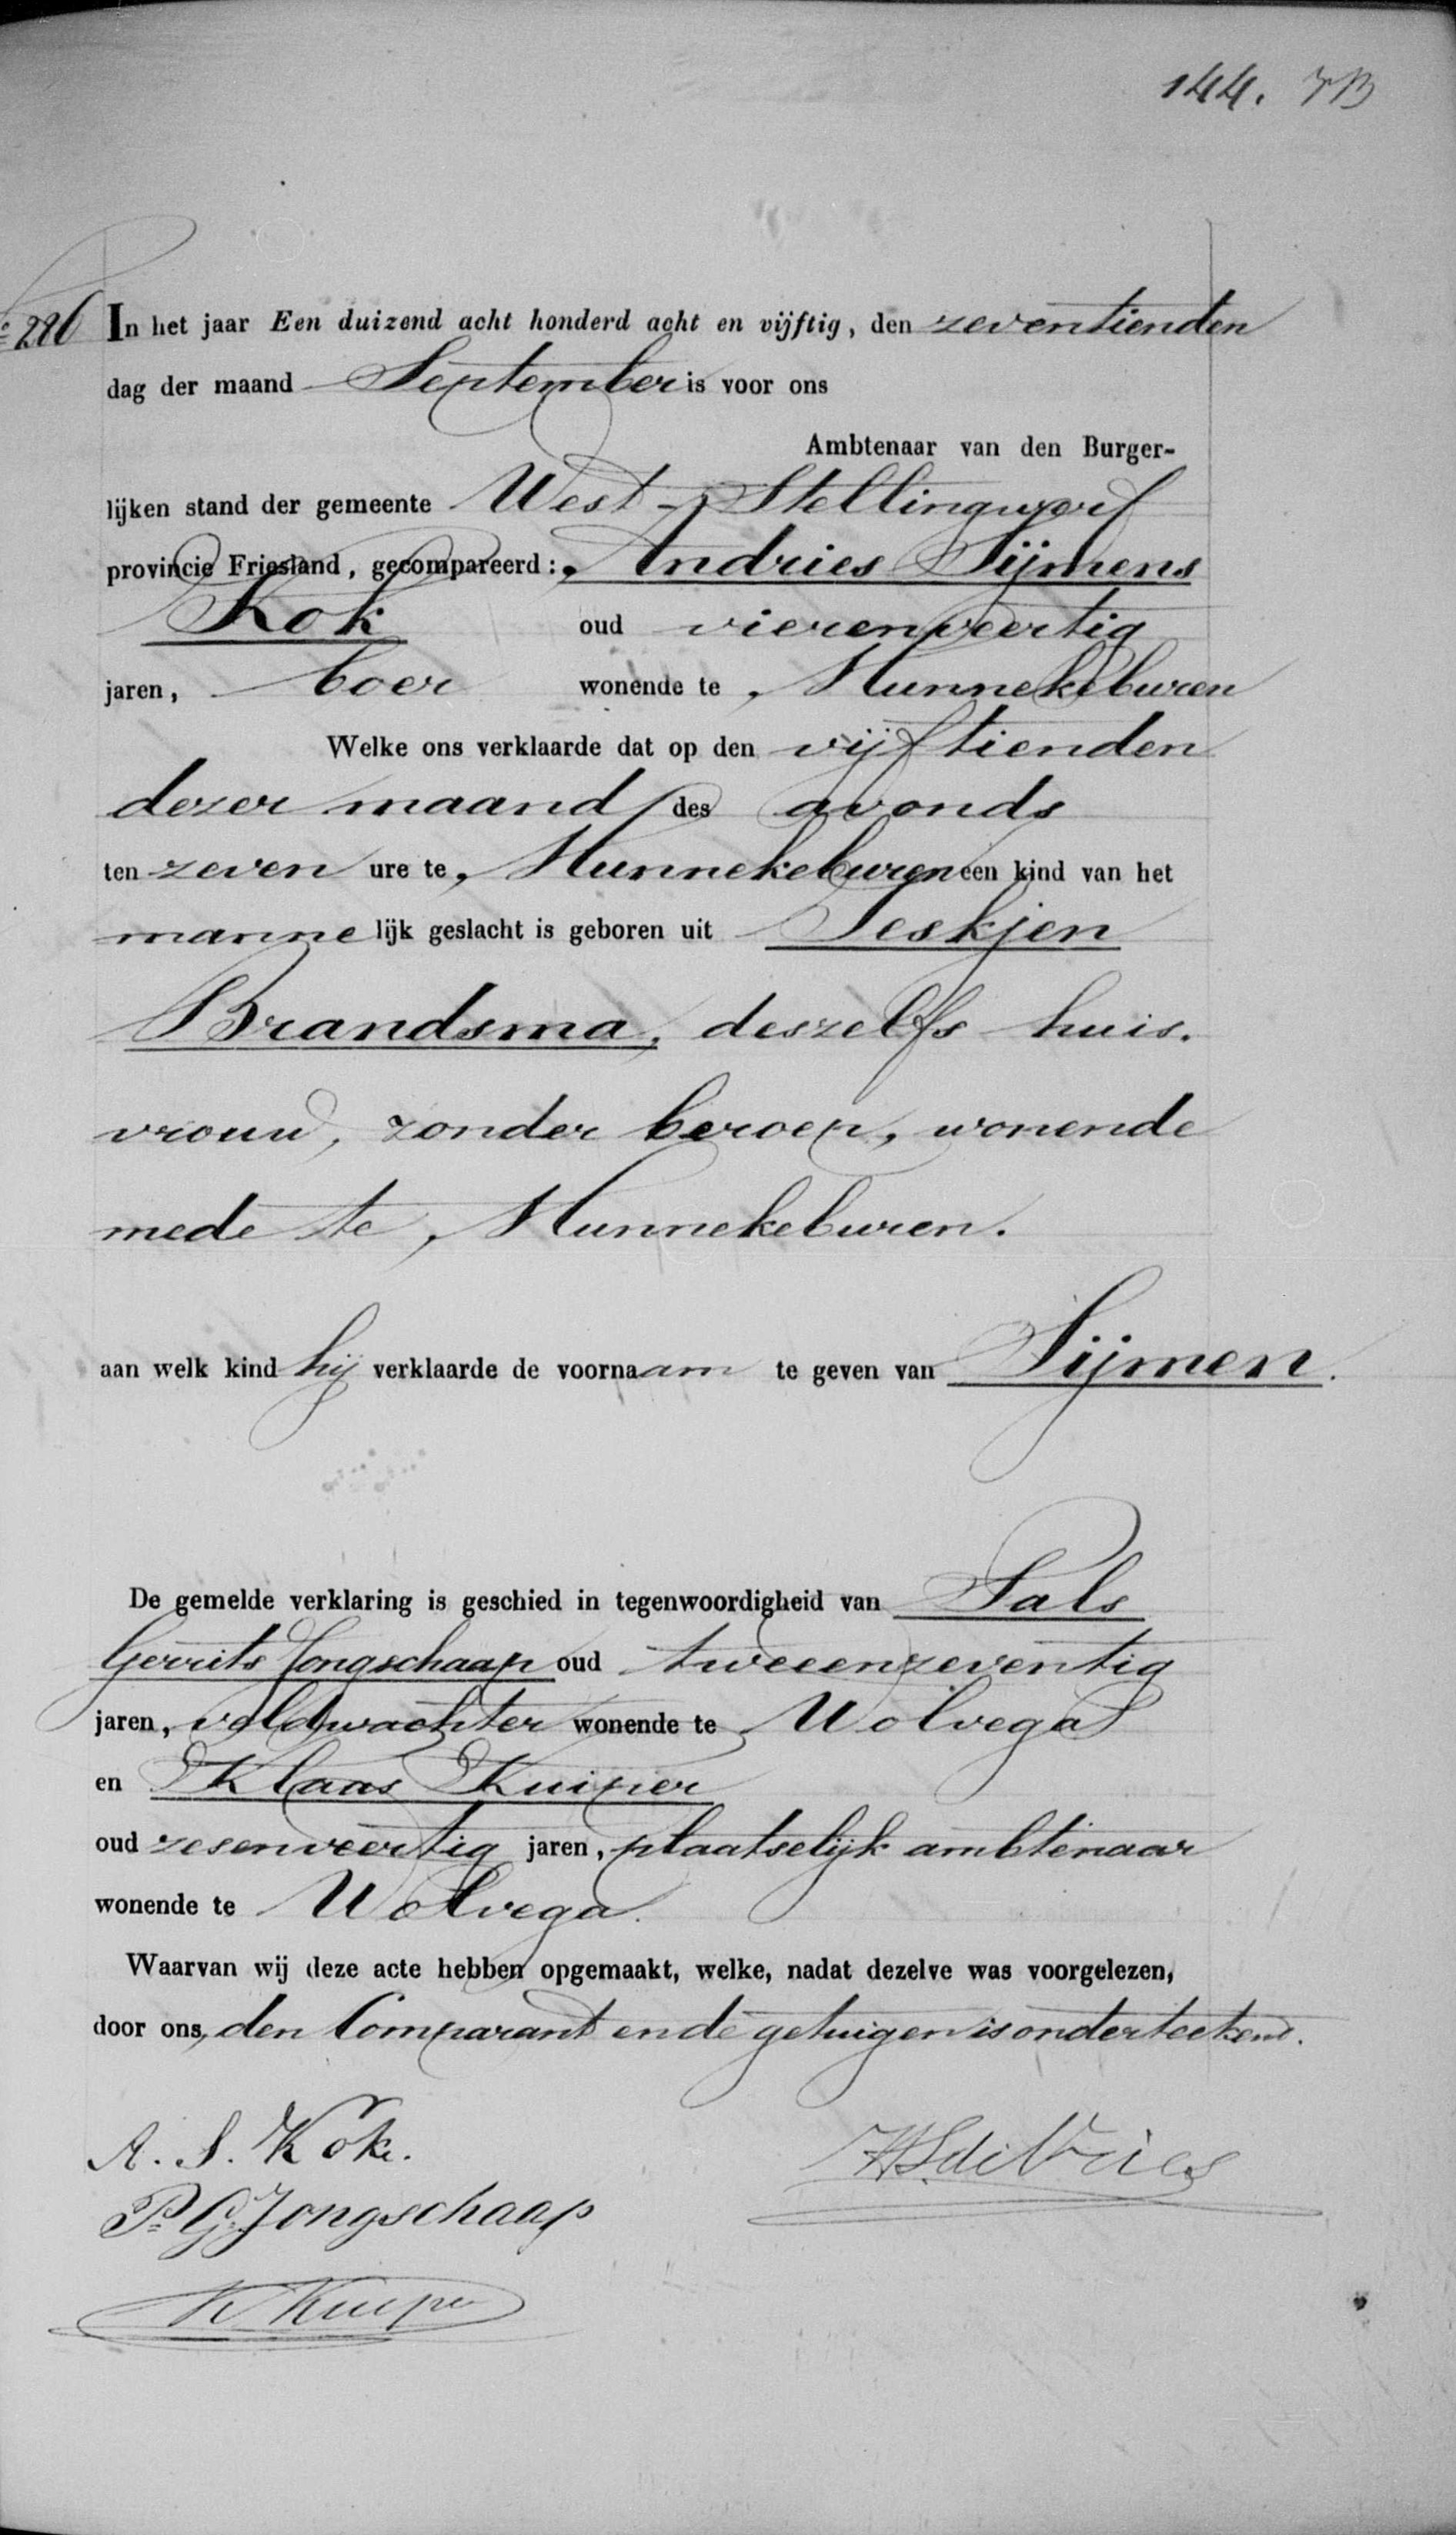 144.
286 In het jaar Een duizend acht honderd acht en vijftig, den zeventienden
dag der maand September is voor ons
Ambtenaar van den Burger-
lijken stand der gemeente West-Stellingwerf
provincie Friesland, gecompareerd: Andries Sijmens
Kok oud vierenveertig
jaren, boer wonende te Munnekeburen
Welke ons verklaarde dat op den vijftienden
dezer maand des avonds
ten zeven ure te Munnekeburen een kind van het
mannelijk geslacht is geboren uit Jeskjen
Brandsma, deszelfs huis.
vrouw, zonder beroep, wonende
mede te Munnekeburen.
aan welk kind hij verklaarde de voornaam te geven van Sijmen.
De gemelde verklaring is geschied in tegenwoordigheid van Pals
Gerrits Jongschaap oud tweeenzeventig
jaren, veldwachter wonende te Wolvega
en Klaas Kuiper
oud zesenveertig jaren, plaatselijk ambtenaar
wonende te Wolvega.
Waarvan wij deze acte hebben opgemaakt, welke, nadat dezelve was voorgelezen,
door ons, den Comparant en de getuigen is onderteekend.
A. S. Kok. de Vries
P. G. Jongschaap
K Kuiper